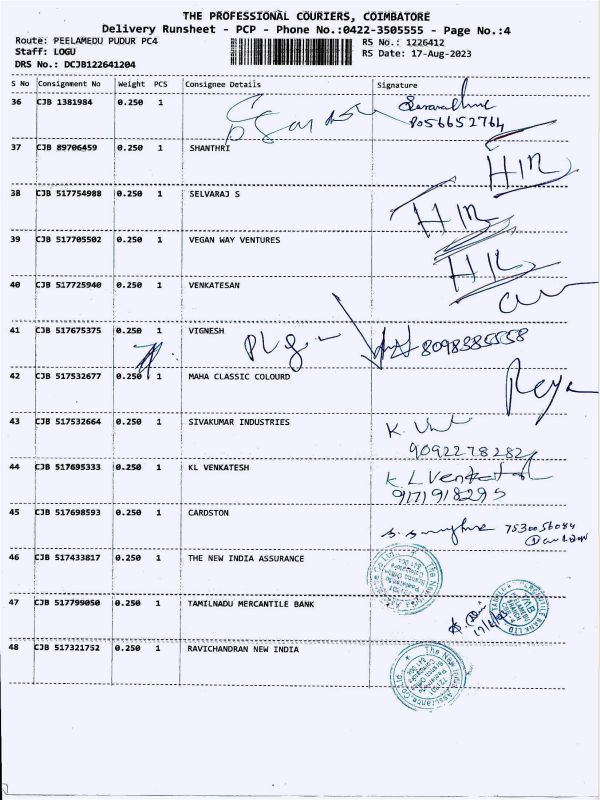 THE PROFESSIONAL COURIERS, COIMBATORE
Delivery Runsheet - PCP - Phone No.:0422-3505555 - Page No.:4
Route: PEELAMEDU PUDUR PC4 RS No.: 1226412
Staff: LOGU RS Date: 17-Aug-2023
DRS No.: DCJB122641204
S No Consignment No Weight PCS Consignee Details Signature
36 CJB 1381984 0.250 1
8056652764
37 CJB 89706459 0.250 1 SHANTHRI
38 CJB 517754988 0.250 1 SELVARAJ S
39 CJB 517705502 0.250 1 VEGAN WAY VENTURES
40 CJB 517725940 0.250 1 VENKATESAN
41 CJB 517675375 0.250 1 VIGNESH
8098385558
42 CJB 517532677 0.250 1 MAHA CLASSIC COLOURD
43 CJB 517532664 0.250 1 SIVAKUMAR INDUSTRIES
9092278282
44 CJB 517695333 0.250 1 KL VENKATESH K. L Venkatesh
9171918295
45 CJB 517698593 0.250 1 CARDSTON
7530056084
46 CJB 517433817 0.250 1 THE NEW INDIA ASSURANCE
47 CJB 517799050 0.250 1 TAMILNADU MERCANTILE BANK
48 CJB 517321752 0.250 1 RAVICHANDRAN NEW INDIA
The New India Assurance Co.Ltd.